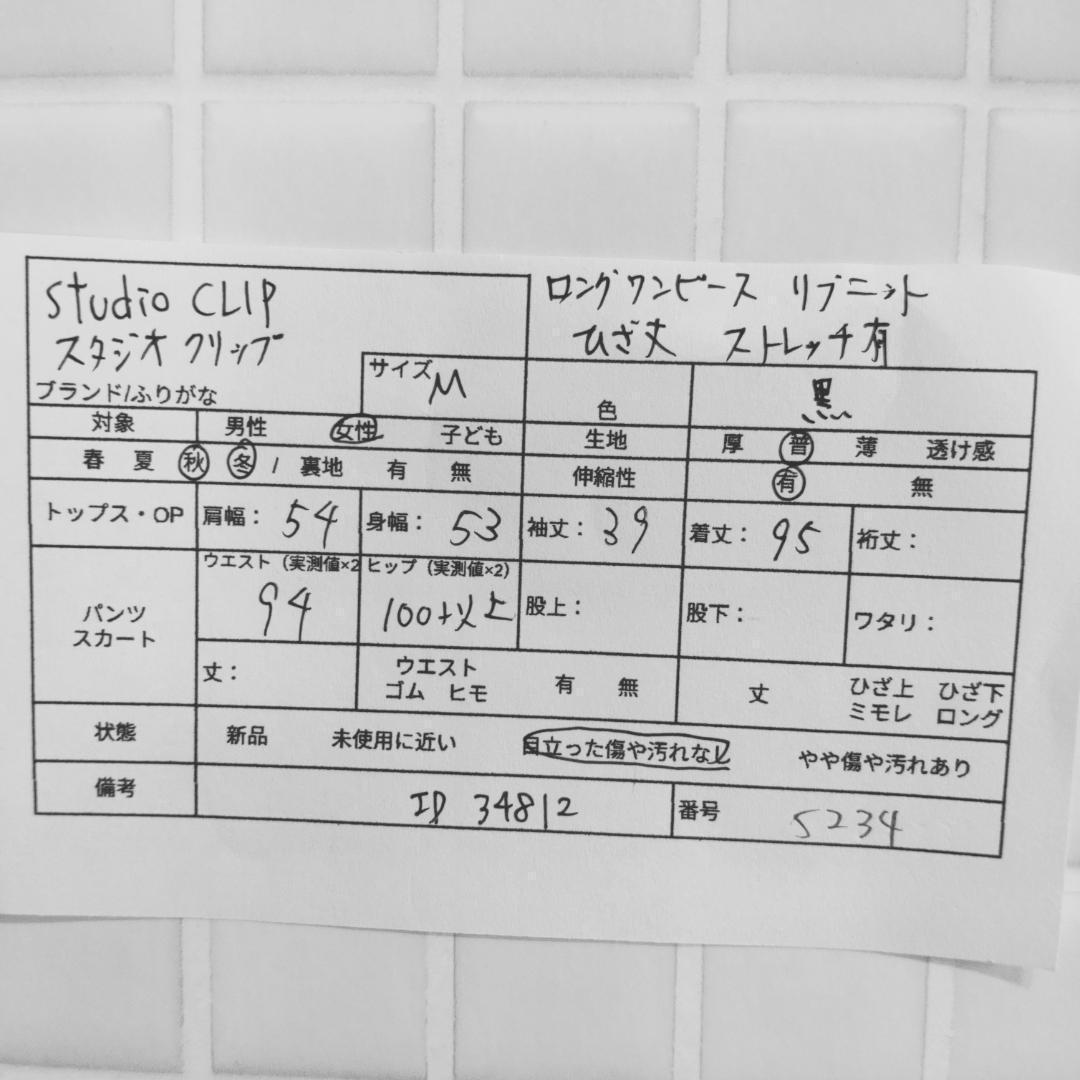 studio CLIP
スタジオ クリップ
ブランド/ふりがな
サイズ M
ロングワンピース リブニット
ひざ丈 ストレッチ有
色 黒
対象 男性 女性 子ども
生地 厚 普 薄 透け感
春 夏 秋 冬 / 裏地 有 無
伸縮性 有 無
トップス・OP 肩幅: 54 身幅: 53 袖丈: 39 着丈: 95 裄丈:
パンツ
スカート
ウエスト (実測値×2 94
ヒップ (実測値×2) 100+以上
股上: 股下: ワタリ:
丈:
ウエスト
ゴム ヒモ
有 無
丈
ひざ上 ひざ下
ミモレ ロング
状態 新品 未使用に近い 目立った傷や汚れなし やや傷や汚れあり
備考 ID 34812 番号 5234